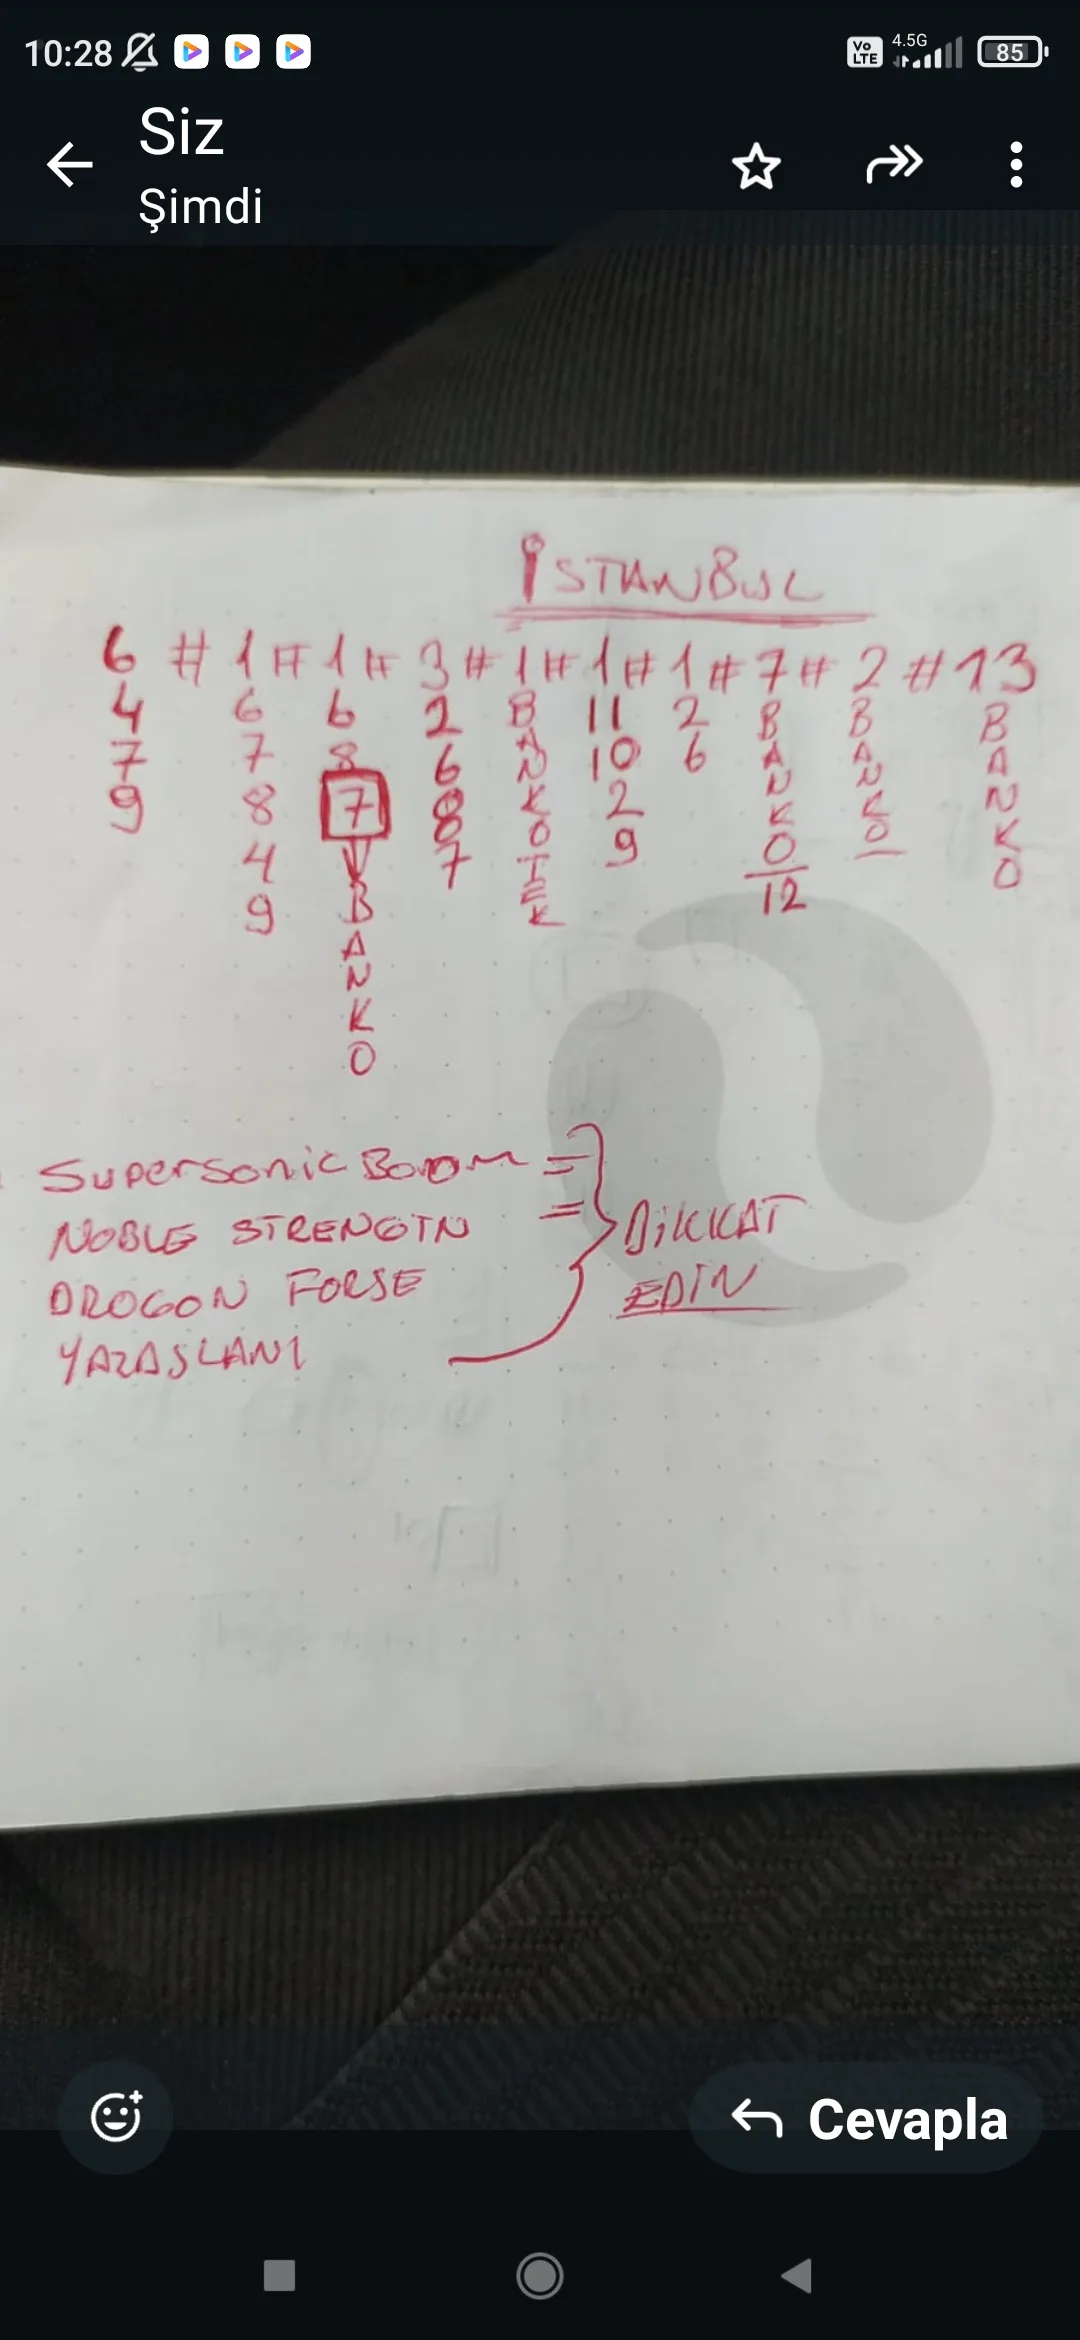 10:28 Vo LTE 4.5G 85
Siz
Şimdi
İSTANBUL
6 # 1 # 1 # 3 # 1 # 1 # 1 # 7 # 2 # 13
4 6 6 2 B 11 2 B B B
7 7 8 6 A 10 6 A A A
9 8 7 8 N 2 N N N
4 7 K 9 K K K
9 O O O O
T 12
E
K
B
A
N
K
O
Supersonic Boom =
NOBLE STRENGTN =
DROGON FORSE
YAZASLANI
DİKKAT
EDİN
Cevapla